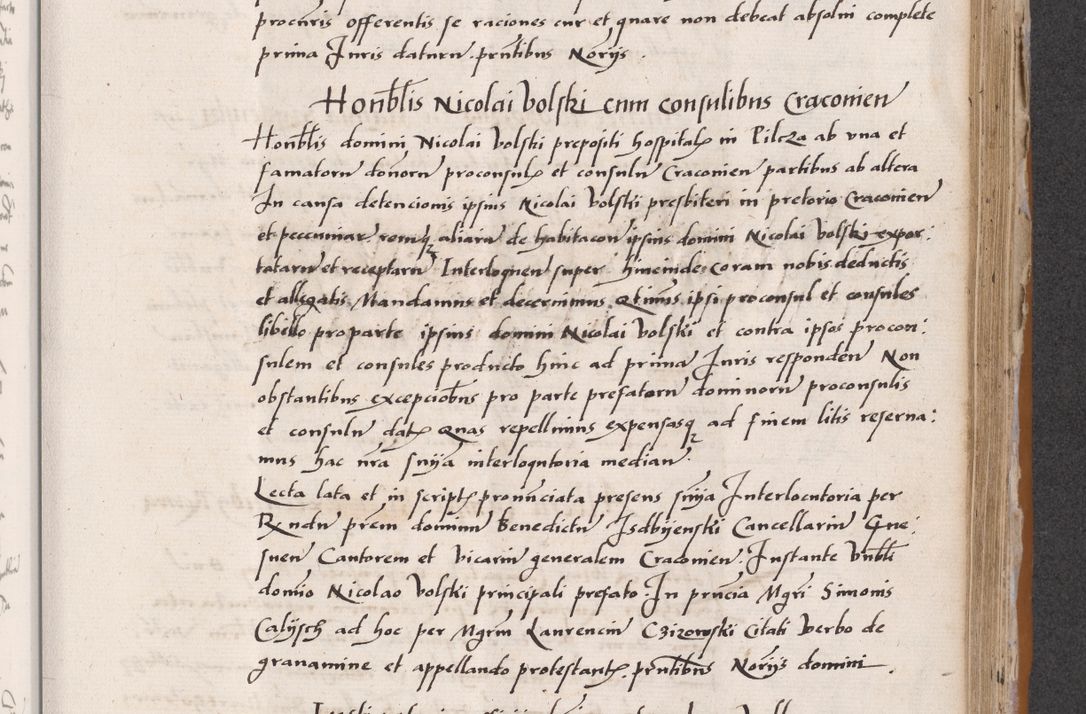 procuris offerentis se raciones cur et quare non debeat absolui complete
prima Juris daturn. pñtibus Norijs.
Honbľis Nicolai volski cum consulibus Cracouien
Honbľis domini Nicolai volski prepositi hospitalis in Pilcza ab vna et
famatorum donorum proconsulis et consulum Cracouien partibus ab altera
In causa detencionis ipsius Nicolai volski presbiteri in pretorio Cracouien
et peccuniar. rerumq aliarum de habitacon ipsius domini Nicolai volski expor:
tatarum et receptarum Interloquen super hincinde coram nobis deductis
et allegatis Mandamus et decernimus qtinus ipsi proconsul et consules
libello pro parte ipsius domini Nicolai volski et contra ipsos procon:
sulem et consules producto hinc ad prima Juris responden Non
obstantibus excepciobus pro parte prefatorum dominorum proconsulis
et consulum datis Quas repellimus expensasq ad finem litis reserua:
mus hac nra snija interloqutoria median.
Lecta lata et in scriptis pronunciata presens snija Interlocutoria per
Rndum prem dominum Benedictum Jsdbijenski Cancellarium Gne:
snen Cantorem et vicarium generalem Cracouien. Instante vnbli
domino Nicolao volski principali prefato. In pncia Mgri Simonis
Calijsch ad hoc per Mgrm Laurencium Czizowski citati verbo de
grauamine et appellando protestantis. pñtibus Norijs domini.